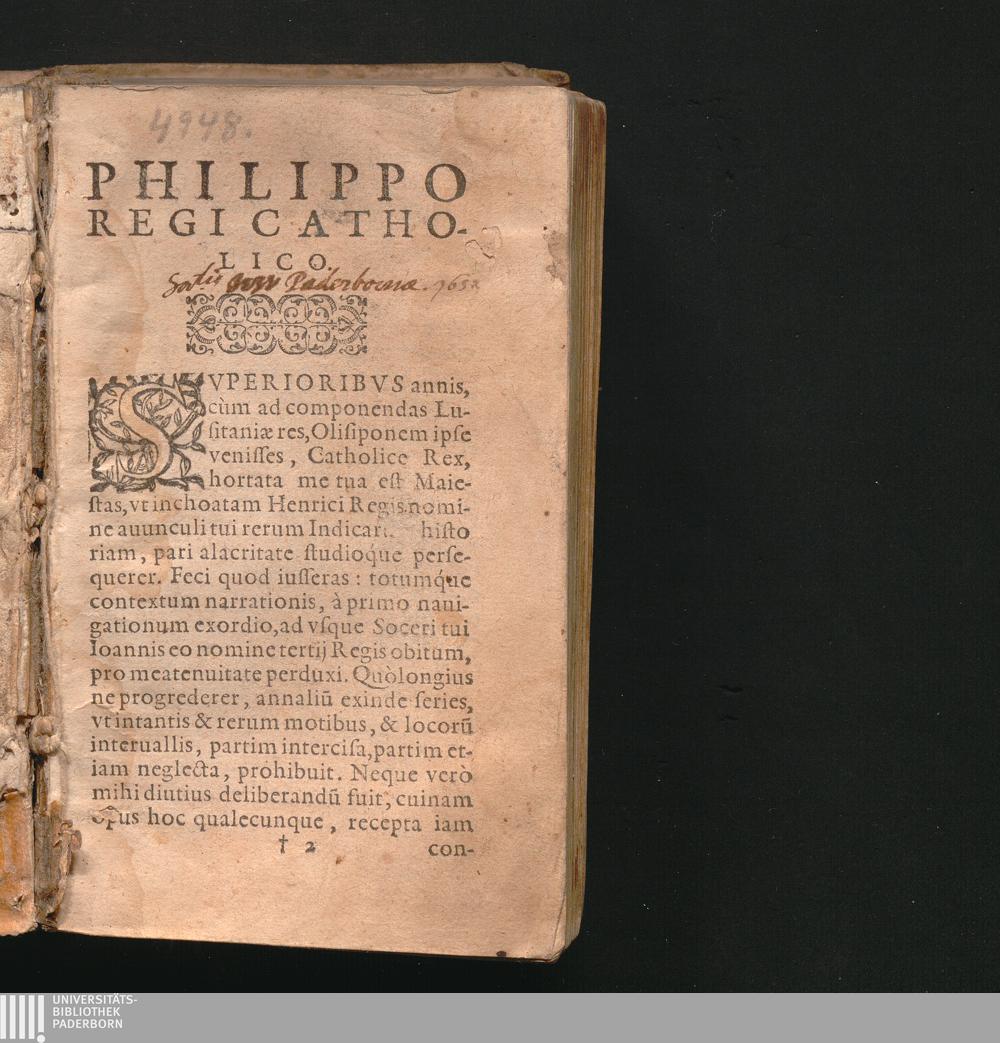 4948.
PHILIPPO
REGI CATHO-
LICO.
Paderbornæ. 1652
SVPERIORIBVS annis,
cùm ad componendas Lu-
ſitaniæ res, Oliſiponem ipſe
veniſſes, Catholice Rex,
hortata me tua eſt Maie-
ſtas, vt inchoatam Henrici Regis nomi-
ne auunculi tui rerum Indicar. hiſto
riam, pari alacritate ſtudioq́ue perſe-
querer. Feci quod iuſſeras: totumq́ue
contextum narrationis, à primo naui-
gationum exordio, ad vſque Soceri tui
Ioannis eo nomine tertij Regis obitum,
pro mea tenuitate perduxi. Quò longius
ne progrederer, annaliū exinde ſeries,
vt in tantis & rerum motibus, & locorū
interuallis, partim interciſa, partim et-
iam neglecta, prohibuit. Neque verò
mihi diutius deliberandū fuit, cuinam
opus hoc qualecunque, recepta iam
† 2 con-
UNIVERSITÄTS-
BIBLIOTHEK
PADERBORN